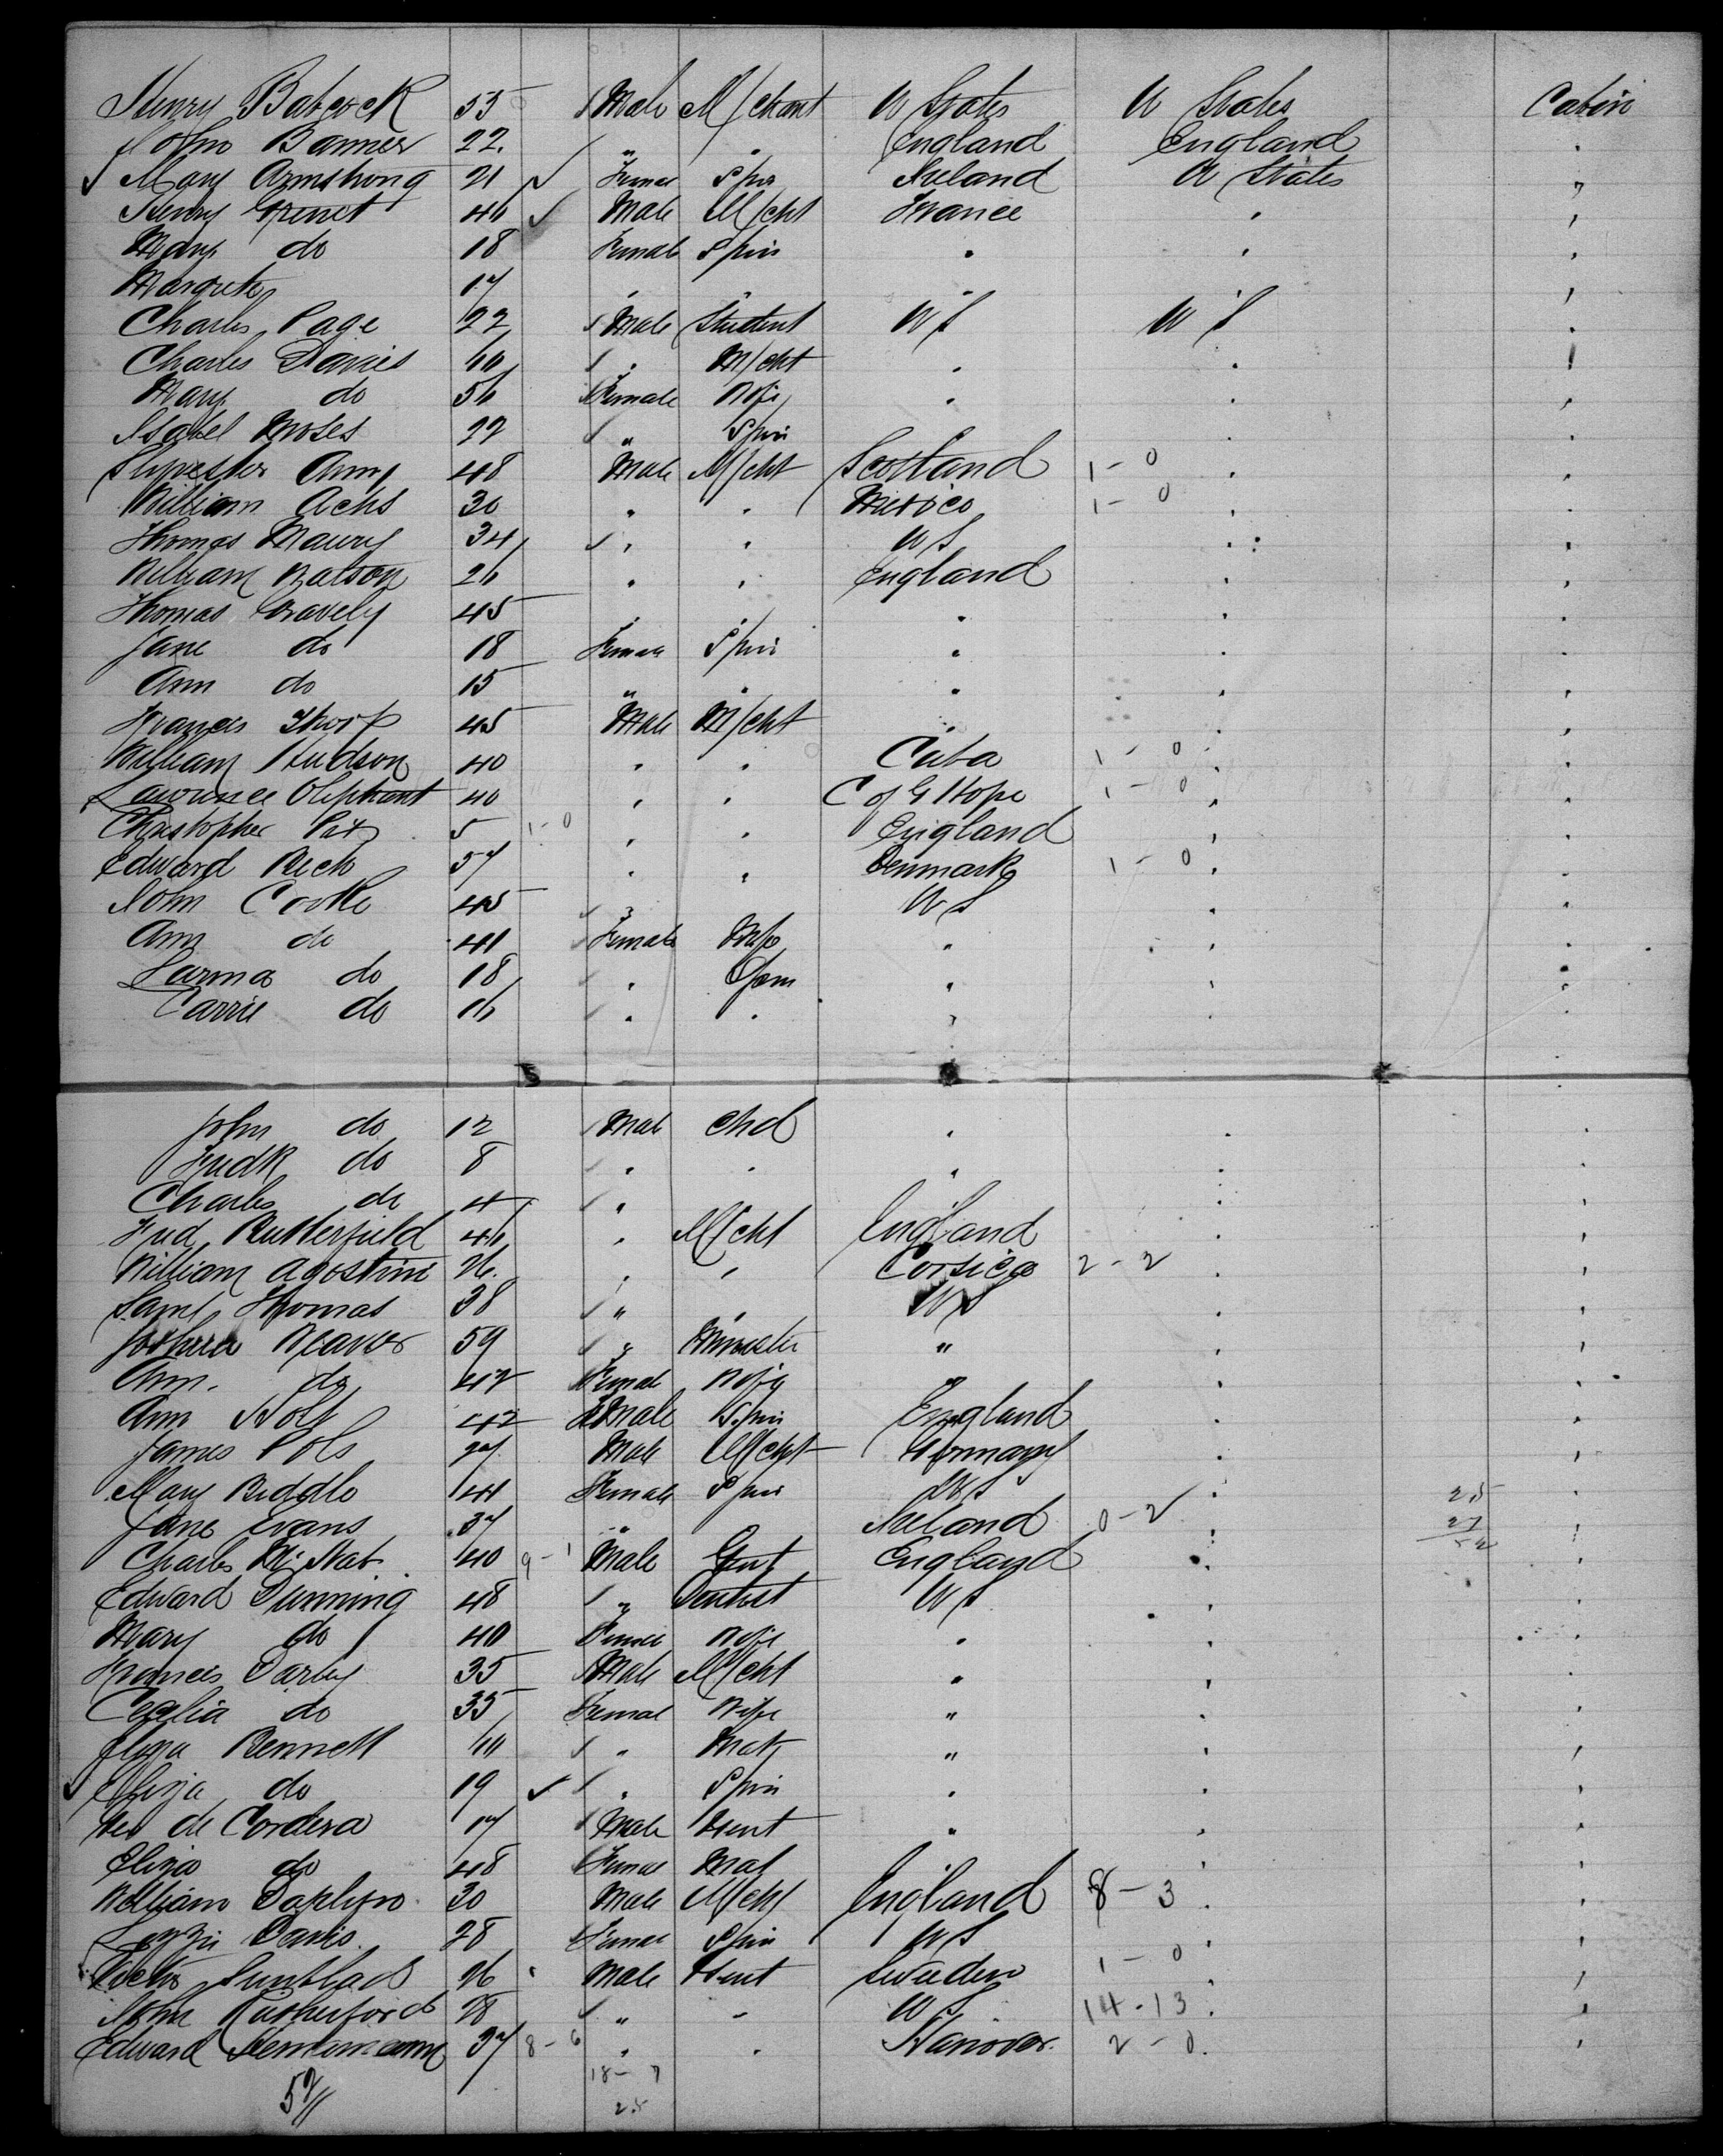 Henry Babcock 55 Male M/chant U States U States Cabin
John Banner 22. " " England England "
Mary Armstrong 21 Female Spin Ireland U States "
Henry 46 Male M/cht France " "
Mary do 18 Female Spin " " "
Margrete 17 " " " "
Charles Page 22 Male Student U S U S "
Charles Davies 60 " M/cht " " "
Mary do 56 Female Wife " " "
Isabel Moses 22 " Spin " "
48 Male M/cht Scotland 1-0 " "
William Achs 30 " " Mexico 1-0 " "
Thomas Maury 34 " " U S " "
William Watson 26 " " England " "
Thomas Gravely 45 " " " "
Jane do 18 Female Spin " " "
Ann do 15 " " " " "
Francis Thorp 45 Male M/cht " " "
William Hudson 40 " " Cuba 1-0 " "
Laurence Oliphant 40 " " C of G Hope 1-0 " "
Christopher 5 1-0 " " England " "
Edward Beck 57 " " Denmark 1-0 " "
John Cooke 45 " U S " "
Ann do 41 Female Wife " " "
do 18 " Spin " " "
Carrie do 16 " " " " "
John do 12 Male Chd " " "
Fredk do 8 " " " " "
Charles do 4 " " "
Fred Butterfield 46 " M/cht England " "
William Agostini 26. " " Corsica 2-2 " "
Saml Thomas 38 " " U S " "
Joshua 59 " Minister " " "
Ann. do 42 Female Wife " " "
Ann Holt 42 Female Spin England " "
James Pols 27 Male M/cht Germany " "
Mary Biddle 41 Female Spin U S " 25 "
Jane Evans 37 " Ireland 0-2 " 27 "
Charles 40 9-1 Male Gent England " 52 "
Edward Dunning 48 " Dentist U S " "
Mary do 40 Female Wife " " "
Frances Darby 35 Male M/cht " " "
Cecelia do 35 Female Wife " " "
Bennett " Mat " " "
Eliza do 19 " Spin " " "
de Cordera 17 Male Gent " " "
Eliza do 48 Female Mat " " "
William 30 Male M/cht England 8-3 " "
Lizzie Davis 28 Female Spin U S " "
26 Male Gent Sweden 1-0 "
John Rutherford 28 " " U S 14-13 " "
Edward 37 8-6 " " Hanover 2-0. "
52//
18-7
25